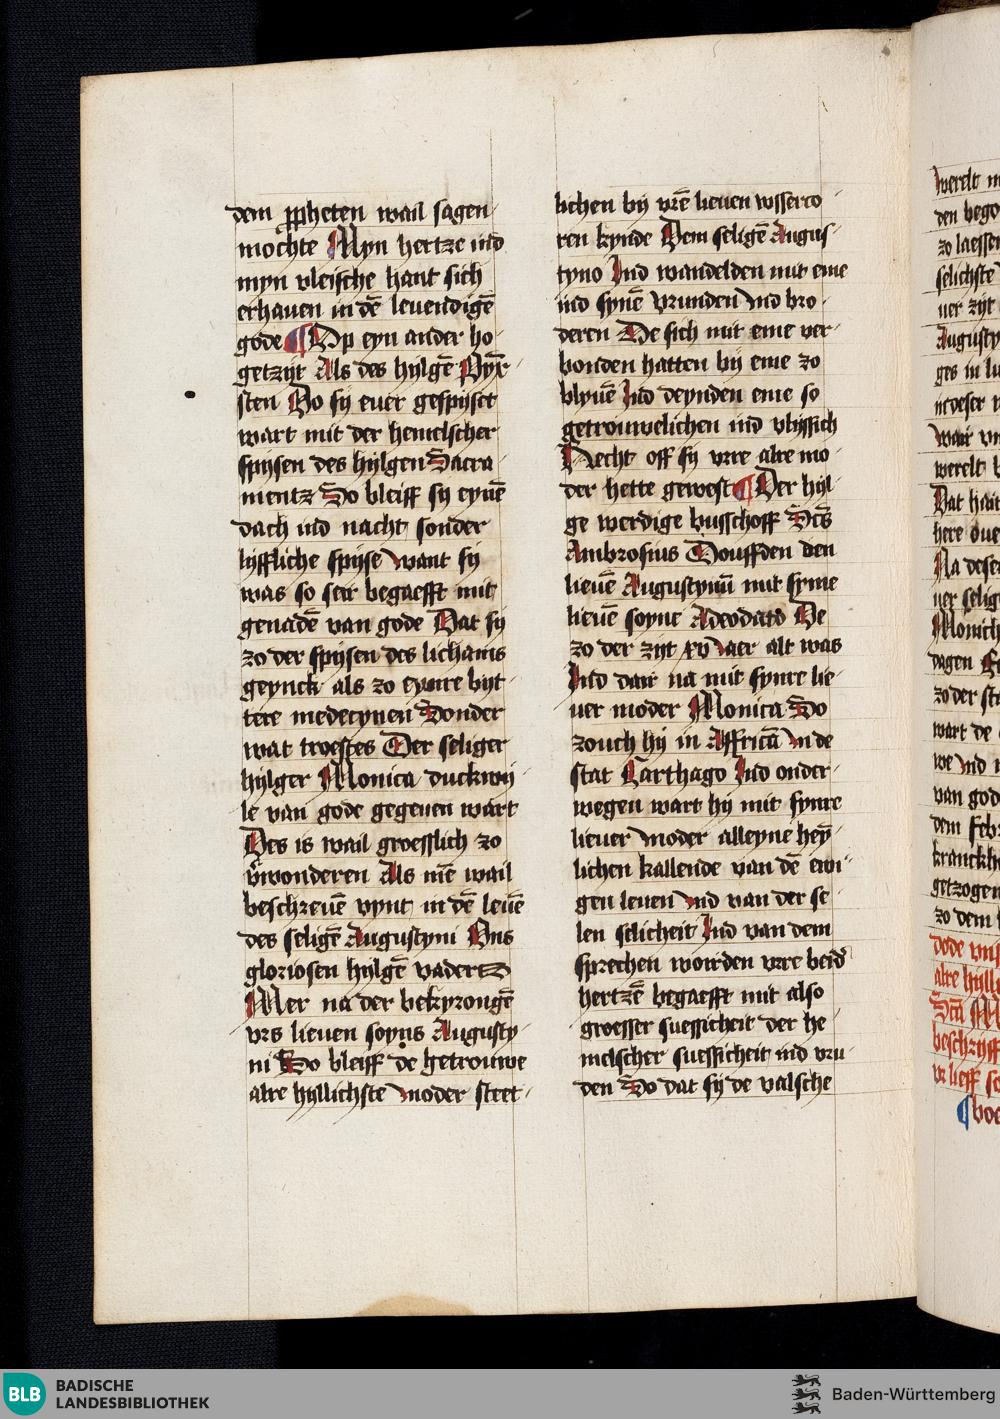 dem ꝓpheten wail sagen
mochte Myn hertze ind
myn vleische hant sich
erhauen in dē leuendigē
gode ¶ Vp eyn ander ho
getzijt Als des hylgē Pȳx
sten Do sy euer gespijset
wart mit der hemelscher
spijsen des hylgen Sacra
mentz So bleiff sy eynē
dach ind nacht sonder
lyffliche spijse want sy
was so seir begaefft mit
genadē van gode Dat sy
zo der spijsen des lichams
geynck als zo eynre byt
tere medecynen Sonder
wat troestes Der seliger
hylger Monica duckwij
le van gode gegeuen wart
Des is wail groesslich zo
v̄wonderen Als mē wail
beschreuē vynt in dē leuē
des seligē Augustyni Vns
gloriosen hylgē vaders
Mer na der bekyrongē
vrs lieuen soyns Augusty
ni So bleiff de getrouwe
alre hyllichste moder steet
lichen by vrē lieuen vsserco
ren kynde Dem seligē Augus
tyno Ind wandelden mit eme
ind synē vrunden Ind bro
deren De sich mit eme ver
bonden hatten by eme zo
blyuē Ind deynden eme so
getrouwelichen ind vlyssich
Recht off sy vrre alre mo
der hette gewest ¶ Der hyl
ge werdige busschoff Scūs
Ambrosius Douffden den
lieuē Augustynū mit syme
lieuē soyne Adeodato De
zo der zijt xv Jaer alt was
Ind dair na mit synre lie
uer moder Monica So
zouch hy in Affricā In de
stat Carthago Ind onder
wegen wart hy mit synre
lieuer moder alleyne hey
lichen kallende van dē ewi
gen leuen Ind van der se
len selicheit Ind van dem
sprechen worden vrre beid
hertzē begaefft mit also
groesser suessicheit der he
melscher suessicheit ind vru
den So dat sy de valsche
BLB
BADISCHE
LANDESBIBLIOTHEK
Baden-Württemberg